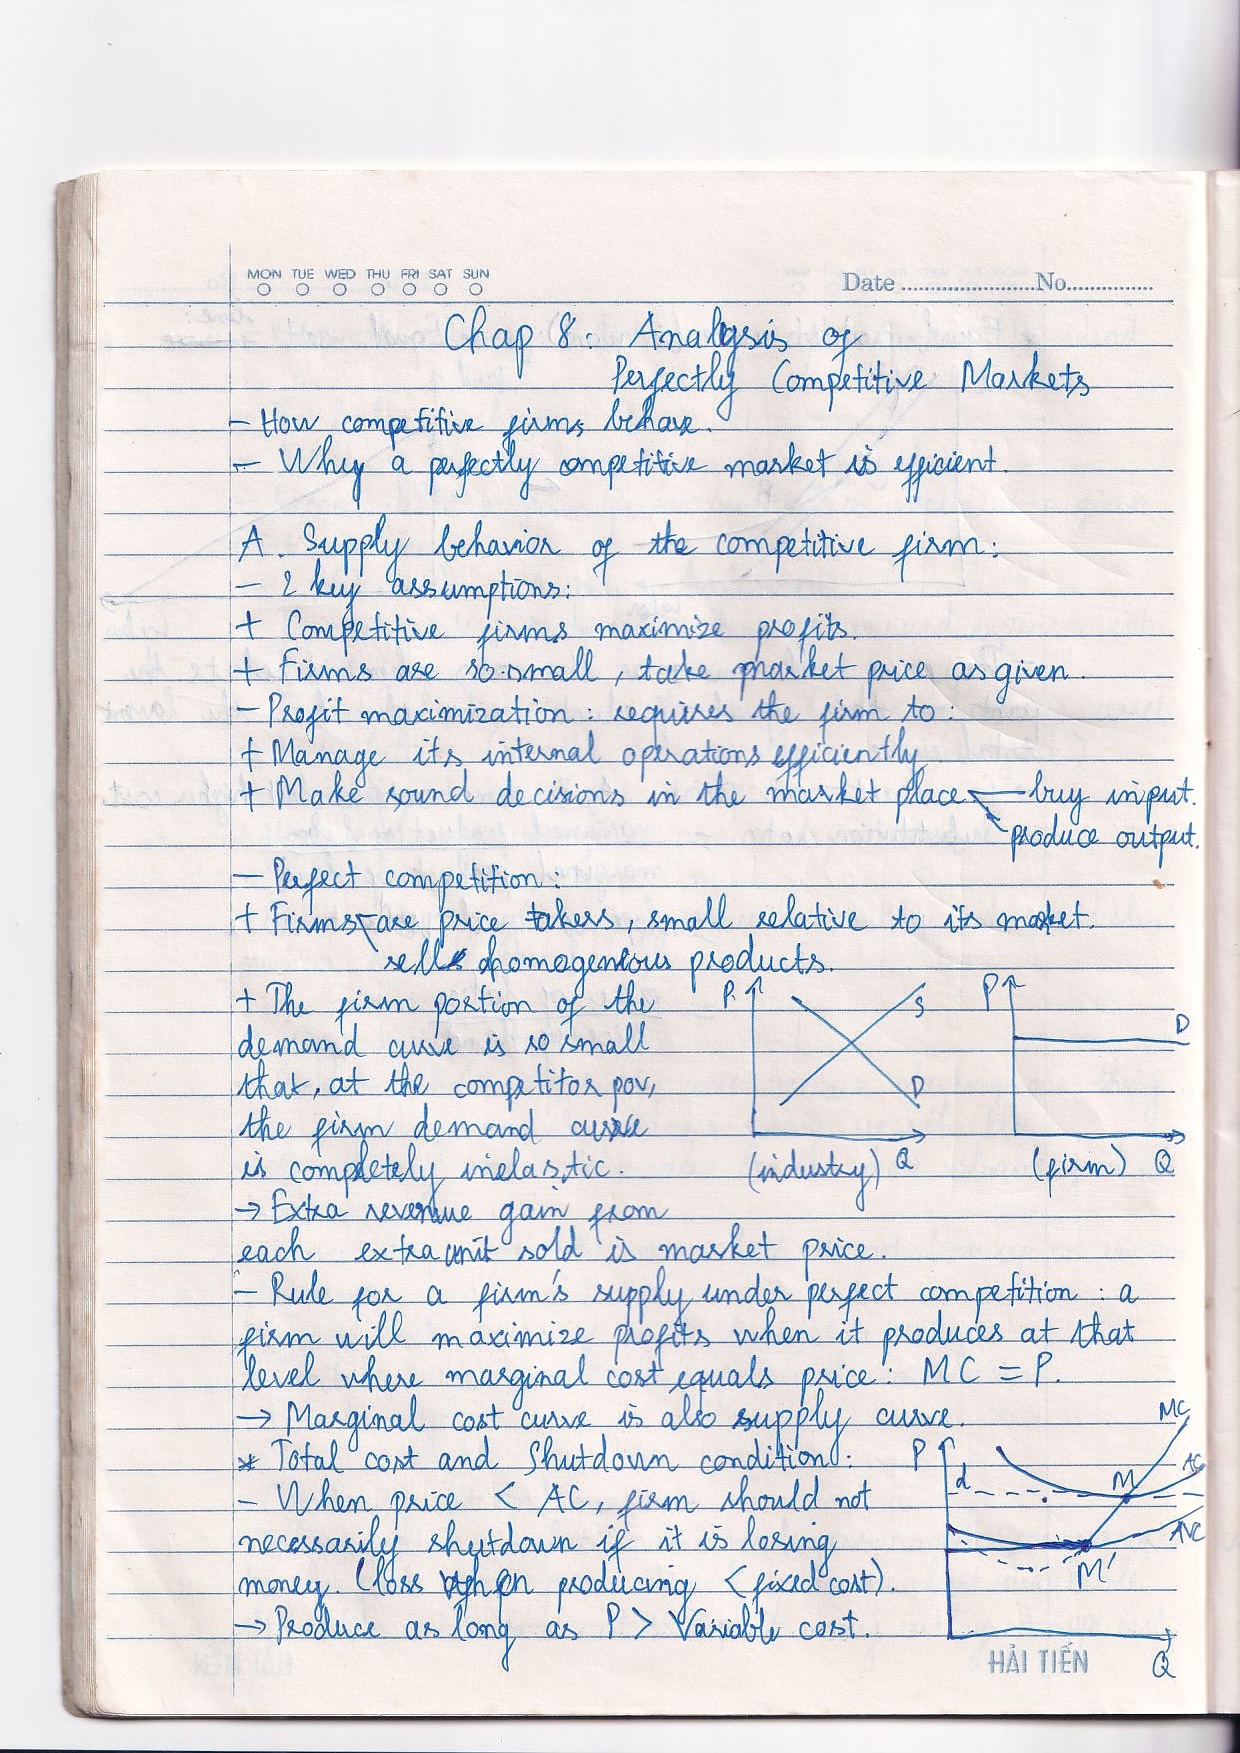 MON TUE WED THU FRI SAT SUN
Date ........................No................
Chap 8: Analysis of
Perfectly Competitive Markets
- How competitive firms behave.
- Why a perfectly competitive market is efficient.
A. Supply behavior of the competitive firm:
- 2 key assumptions:
+ Competitive firms maximize profits.
+ Firms are so small, take market price as given.
- Profit maximization: requires the firm to:
+ Manage its internal operations efficiently
+ Make sound decisions in the market place buy input.
produce output.
- Perfect competition:
+ Firms are price takers, small relative to its market.
sell homogenious products.
+ The firm portion of the
demand curve is so small
that, at the competitor pov,
the firm demand curve
is completely inelastic.
P S D (industry) Q
P D (firm) Q
→ Extra revenue gain from
each extra unit sold is market price.
- Rule for a firm's supply under perfect competition: a
firm will maximize profits when it produces at that
level where marginal cost equals price: MC = P.
→ Marginal cost curve is also supply curve.
* Total cost and Shutdown condition:
- When price < AC, firm should not
necessarily shutdown if it is losing
money. (loss when producing < fixed cost).
→ Produce as long as P > Variable cost.
P d MC M AC AVC M' Q
HẢI TIẾN